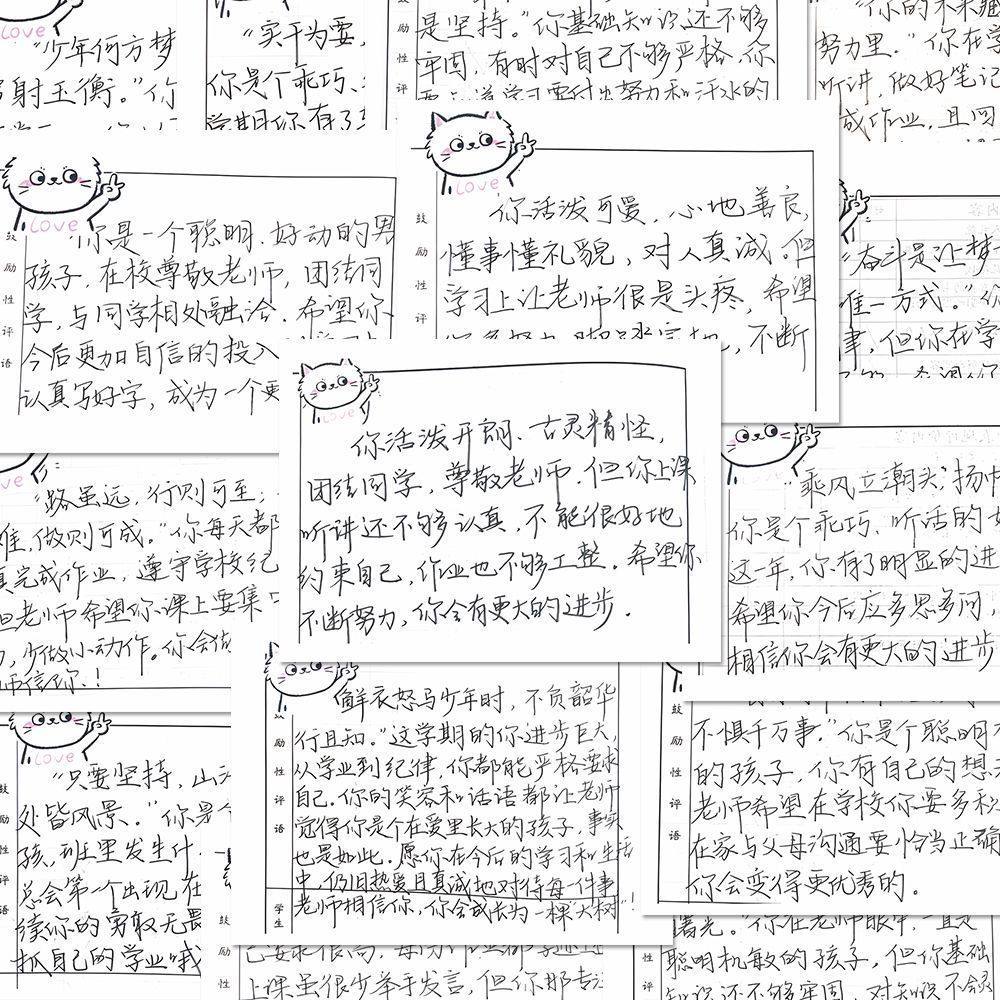 Love
"少年何方梦
射玉衡。"你
"实干为要,
你是个乖巧、
学期你有了
是坚持。"你基础知识还不够
牢固,有时对自己不够严格,你
评
"你的未来
努力里。"你在学
听讲,做好笔记
成作业,且
Love
鼓励性评语
你是一个聪明、好动的男
孩子,在校尊敬老师,团结同
学,与同学相处融洽。希望你
今后更加自信的投入
认真写好字,成为一个更
Love
鼓励性评
你活泼可爱,心地善良,
懂事懂礼貌,对人真诚。但
学习上让老师很是头疼,希望
不断
"奋斗是让梦
唯一方式。"
事,但你在学
Love
你活泼开朗、古灵精怪,
团结同学,尊敬老师。但你上课
听讲还不够认真,不能很好地
约束自己,作业也不够工整。希望你
不断努力,你会有更大的进步。
"路虽远,行则可至;
难,做则可成。"你每天都
真完成作业,遵守学校纪
但老师希望你课上要集
少做小动作。你会
师信你!
"乘风立潮头,扬
你是个乖巧、听话的
这一年,你有了明显的进
希望你今后应多思多问,
相信你会有更大的进步
励性评语
鲜衣怒马少年时,不负韶华
行且知。"这学期的你进步巨大,
从学业到纪律,你都能严格要求
自己。你的笑容和话语都让老师
觉得你是个在爱里长大的孩子,事实
也是如此。愿你在今后的学习和生活
中,仍旧热爱且真诚地对待每一件事
老师相信你,你会成长为一棵"大树"!
学生
鼓励性评语
不惧千万事。"你是个聪明
的孩子,你有自己的想
老师希望在学校你要多
在家与父母沟通要恰当正确
你会变得更优秀的。
Love
鼓励性评语
"只要坚持,山
处皆风景。"你是个
孩,班里发生什
总会第一个出现在
续你的勇敢无畏
抓自己的学业哦
鼓励性
上课虽很少举手发言,但你那专
曙光。"你在老师眼中一直是
聪明机敏的孩子,但你基础
知识还不够牢固,对知识不会